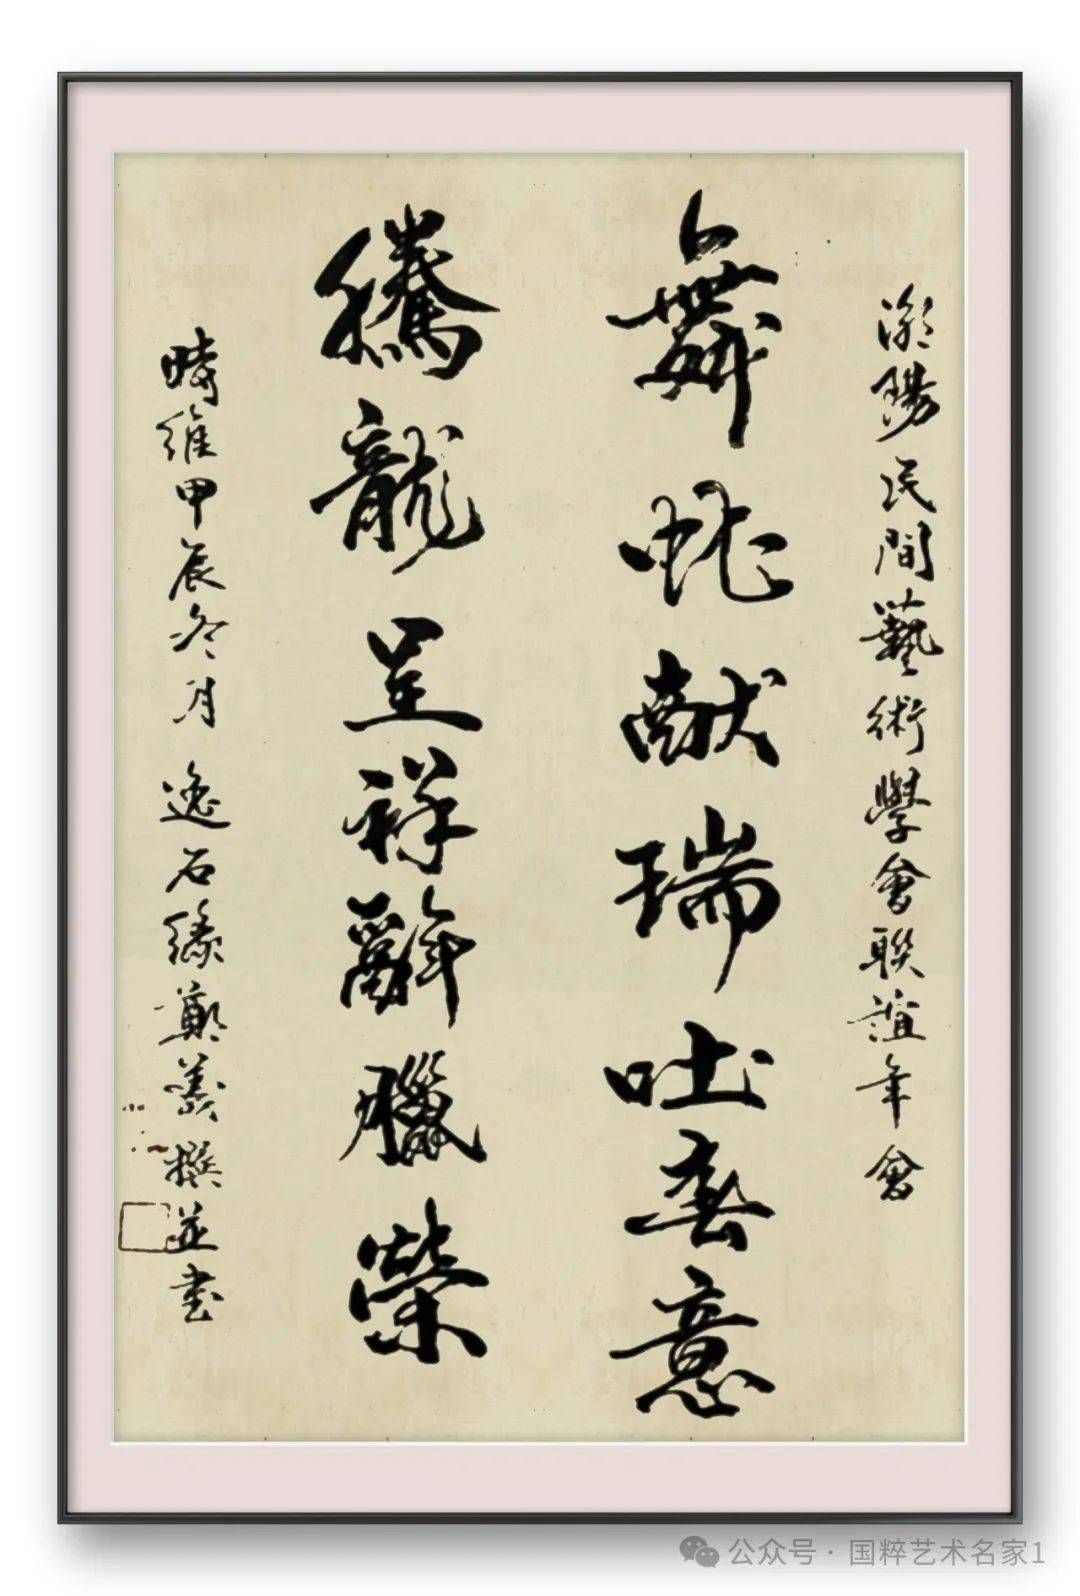 潮陽民間藝術學會聯誼年會
舞蛇献瑞吐春意
騰龍呈祥辭臘榮
時維甲辰冬月 逸石緣鄭義撰並书
公众号 · 国粹艺术名家1